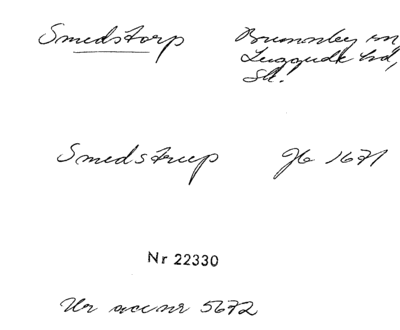 Smedstorp Brunnby sn
Luggude hd,
Sk.
Smedstrup Jb 1671
Nr 22330
Ur acc nr 5672